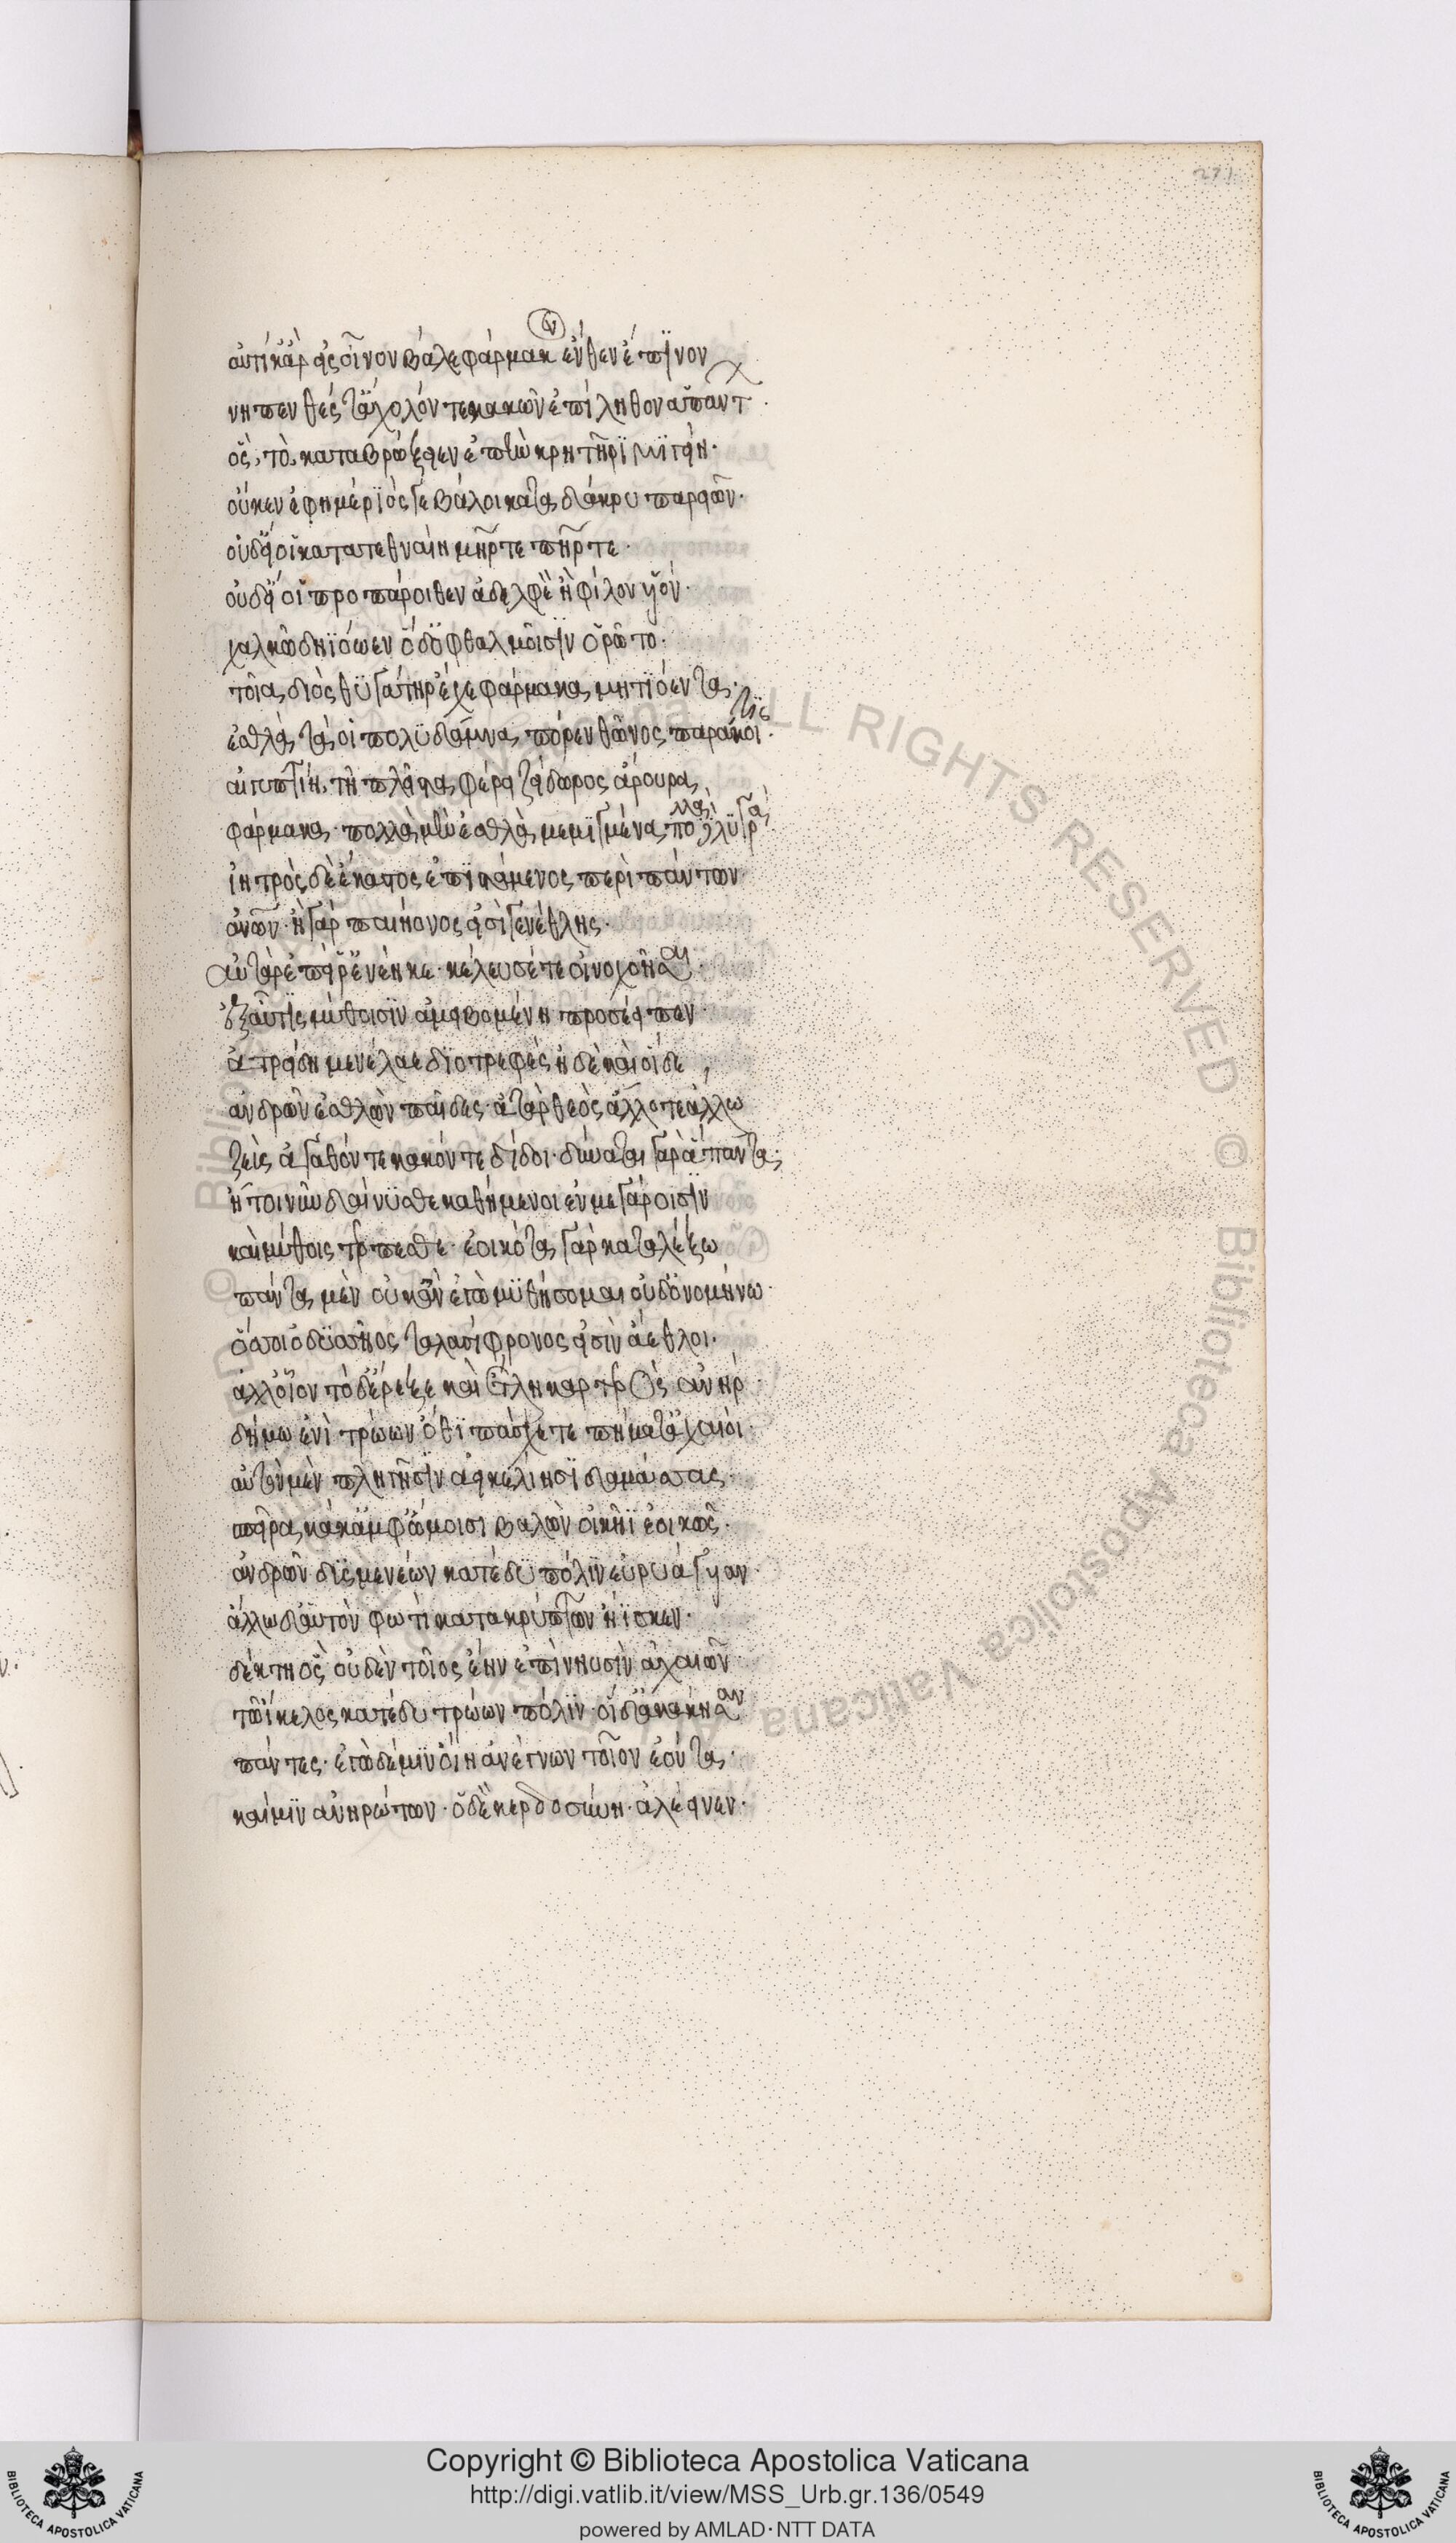 αὐτίκ' ἂρ εἰς οἶνον βάλε φάρμακον ἔνθεν ἔπϊνον
νηπενθές τ' ἄχολόν τε κακῶν ἐπίληθον ἁπάντ
ὃς τὸ καταβρώξειεν ἐπὴν κρητῆρϊ μϊγείη·
οὔκεν ἐφημέρϊός γε βάλοι κατα δάκρυ παρειῶν·
οὐδ' εἴ οἱ κατατεθναίη μηρ τε πηρ τε·
οὐδ' εἴ οἱ προπάροιθεν ἀδελφεὸν ἢ φίλον υἱόν·
χαλκῶ δηϊόωεν ὃ δ' ὀφθαλμοῖσϊν ὁρῶτο·
τοῖα διὸς θϋγάτηρ ἔχε φάρμακα μητϊόεντα·
ἐσθλὰ τά οἱ πολϋδάμνα πόρεν θῶνος παράκοιτϊς
αἰγυπτίη· τῆ πλεῖστα φέρει ζείδωρος ἄρουρα
φάρμακα· πολλὰ μὲν ἐσθλὰ μεμϊγμένα πολλὰ δὲ λϋγρά
ἰητρὸς δὲ ἕκαστος ἐπϊστάμενος περὶ πάντων
ἀνῶν· ἦ γὰρ παιήονος εἰσὶ γενέθλης·
αὐτὰρ ἐπεί ῥ' ἐνέηκε· κέλευσέ τε οἰνοχοῆσαι·
ἐξαῦτϊς μύθοισϊν ἀμειβομένη προσέειπεν·
ἀτρείδη μενέλαε δϊοτρεφές ἠδὲ καὶ οἵδε
ἀνδρῶν ἐσθλῶν παῖδες· ἀτὰρ θεὸς ἄλλοτε ἄλλω
ζεὺς ἀγαθόν τε κακόν τε δίδοι· δύναται γὰρ ἅπαντα·
ἤτοι νῦν δαίνϋσθε καθήμενοι ἐν μεγάροισϊν
καὶ μύθοις τέρπεσθε· ἐοικότα γὰρ καταλέξω
πάντα μὲν οὐκ ἂν ἐγὼ μϋθήσομαι οὐδ' ὀνομήνω·
ὅσσοι ὀδϋσσῆος ταλασίφρονος εἰσὶν ἄεθλοι·
ἀλλ' οἷον τόδ' ἔρεξε καὶ ἔτλη καρτερὸς ἀνήρ
δήμω ἐνὶ τρώων ὅθϊ πάσχετε πήματ' ἀχαιοί·
αὐτόν μὲν πληγῆσϊν ἀεικελίησϊ δαμάσσας·
σπεῖρα κάκ' ἀμφ' ὤμοισι βαλὼν οἰκῆϊ ἐοικώς·
ἀνδρῶν δϋςμενέων κατέδϋ πόλϊν εὐρυάγυιαν·
ἄλλω δ' αὐτὸν φωτὶ κατακρύπτων ἤϊσκεν·
δέκτη ὃς οὐδὲν τοῖος ἔην ἐπὶ νηυσὶν ἀχαιῶν·
τῶ ἴκελος κατέδυ τρώων πόλϊν· οἱ δ' ἀβάκησαν
πάντες· ἐγὼ δέ μϊν οἴη ἀνέγνων τοῖον ἐόντα·
καί μϊν ἀνηρώτων· ὃ δὲ κερδοσύνη· ἀλέεινεν·